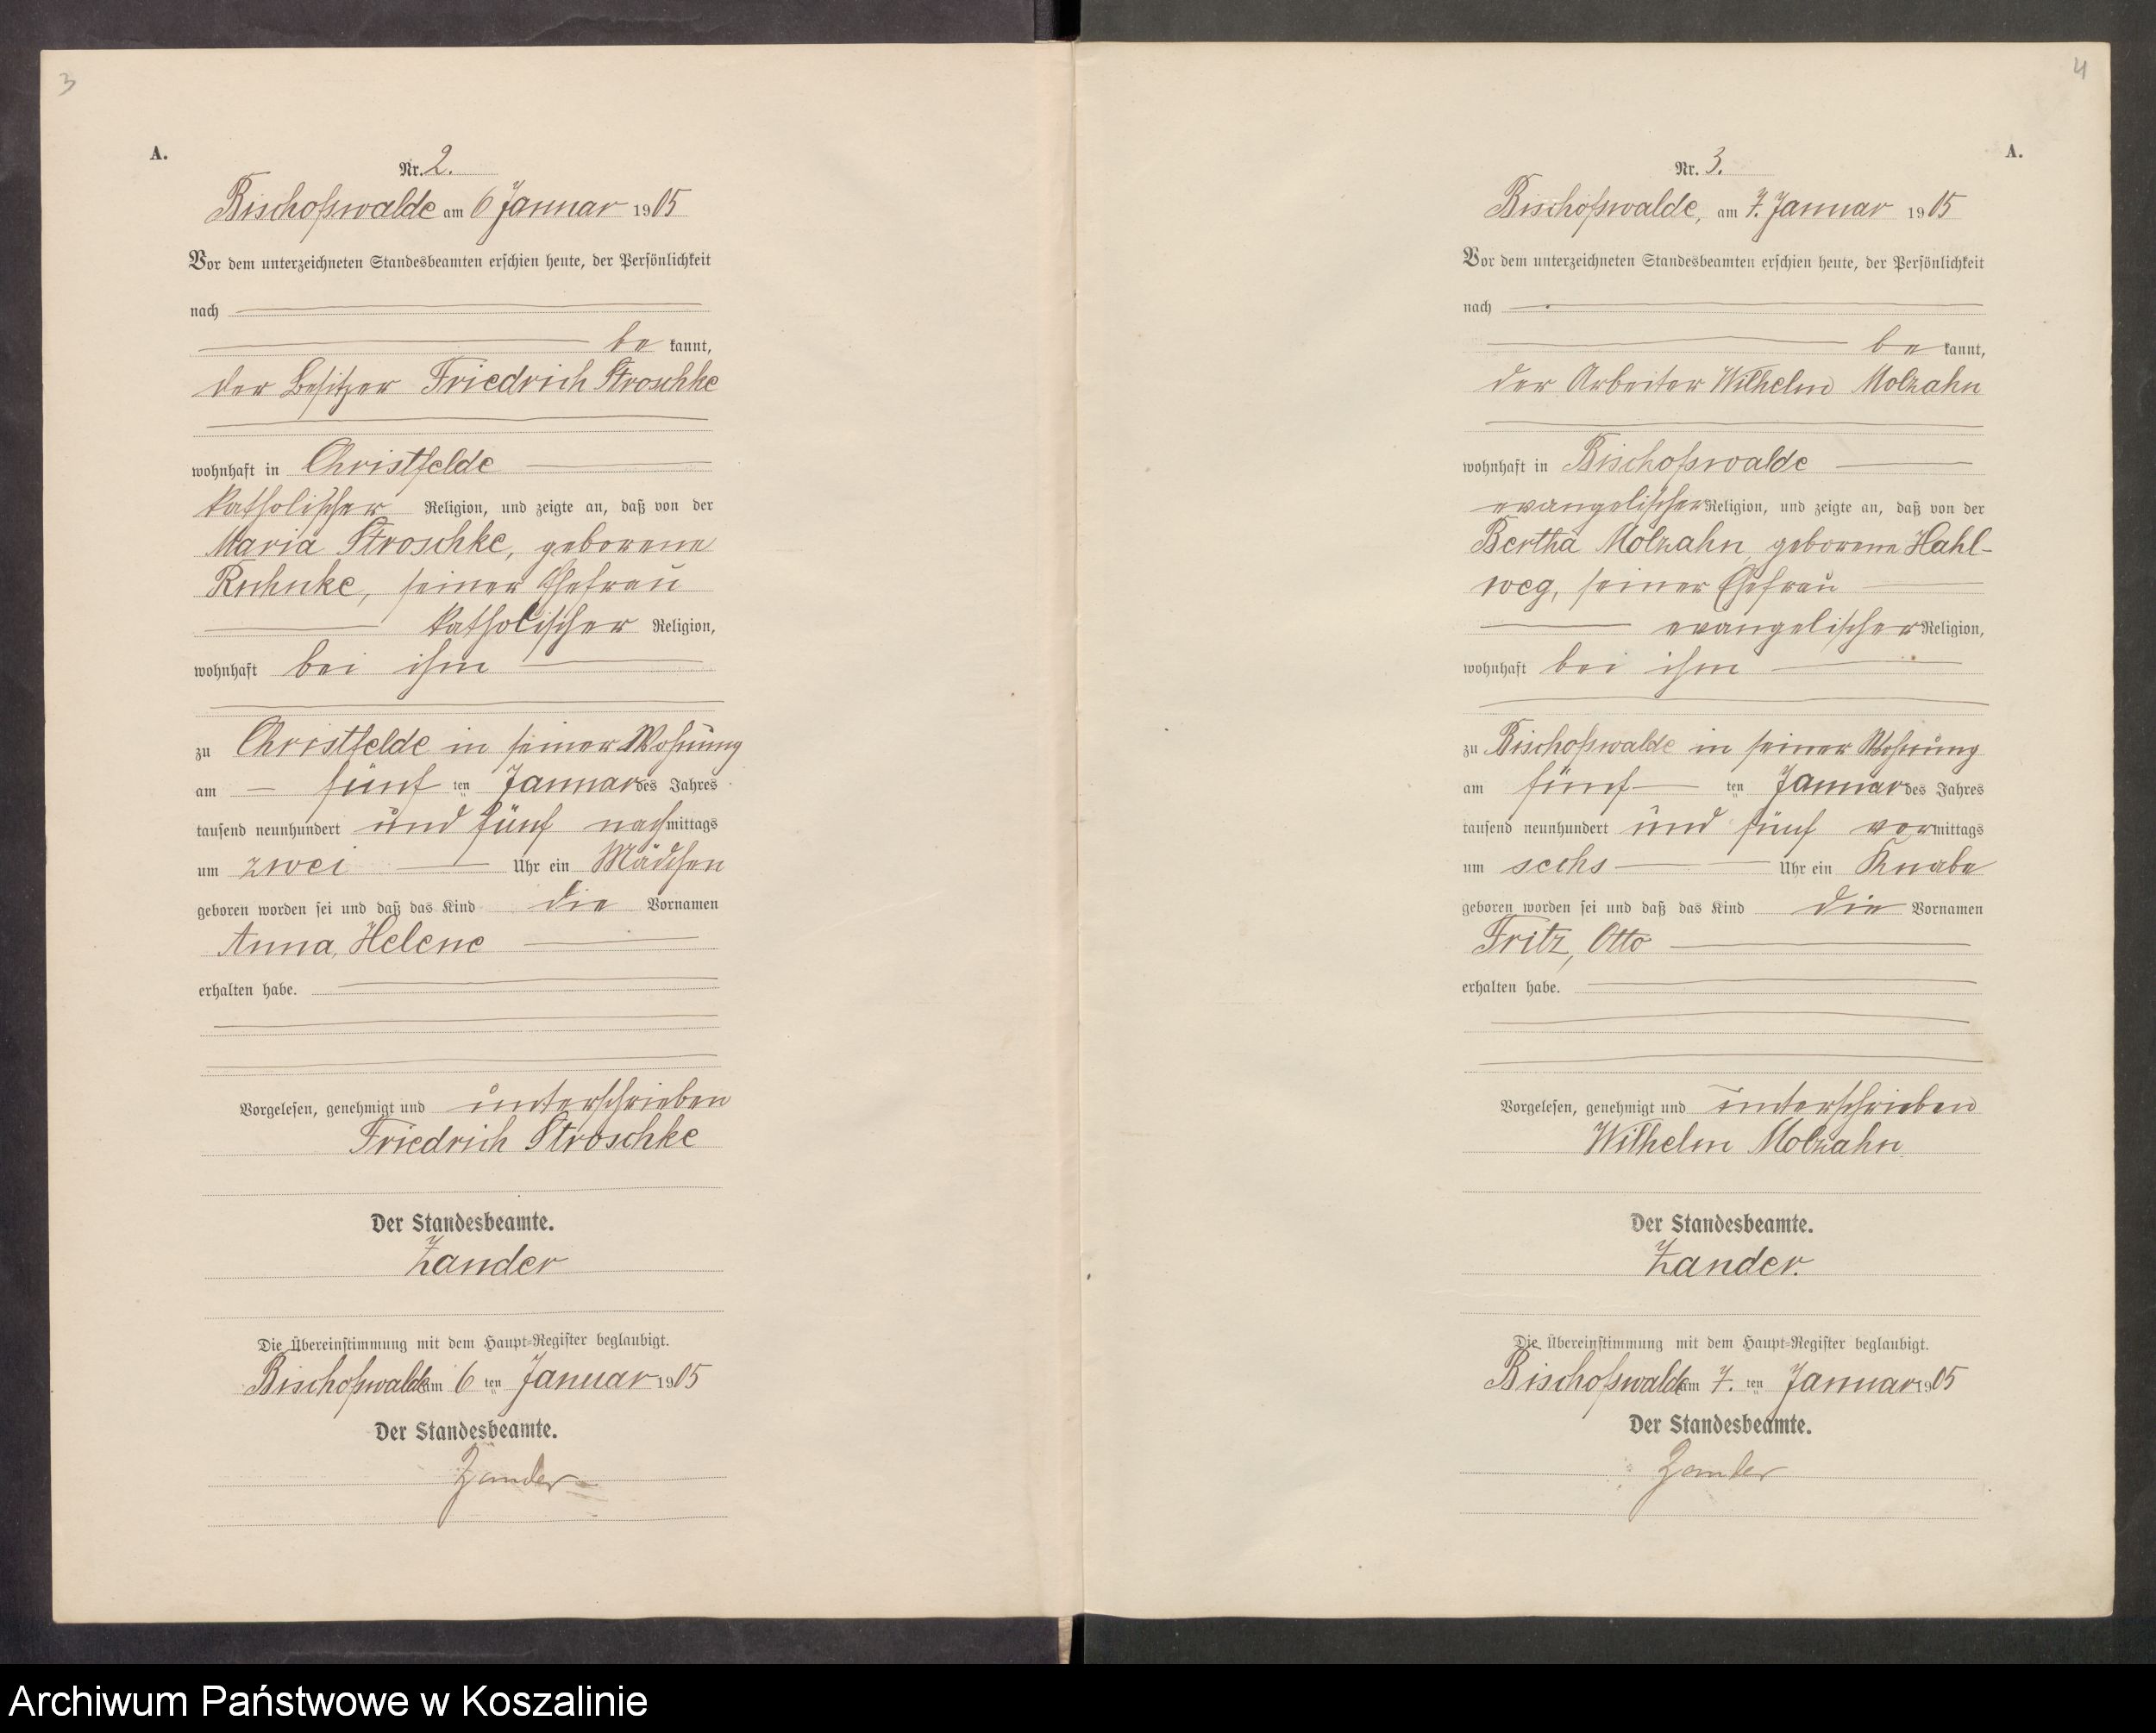 3
A.
Nr. 2.
Bischofswalde am 6 Januar 1905
Vor dem unterzeichneten Standesbeamten erschien heute, der Persönlichkeit
nach
be kannt,
der Besitzer Friedrich Stroschke
wohnhaft in Christfelde
katholischer Religion, und zeigte an, daß von der
Maria Stroschke, geborene
Ruhnke, seiner Ehefrau
katholischer Religion,
wohnhaft bei ihm
zu Christfelde in seiner Wohnung
am fünf ten Januar des Jahres
tausend neunhundert und fünf nachmittags
um zwei Uhr ein Mädchen
geboren worden sei und daß das Kind die Vornamen
Anna, Helene
erhalten habe.
Vorgelesen, genehmigt und unterschrieben
Friedrich Stroschke
Der Standesbeamte.
Zander
Die Übereinstimmung mit dem Haupt-Register beglaubigt.
Bischofswalde am 6 ten Januar 1905
Der Standesbeamte.
Zander
4
A.
Nr. 3.
Bischofswalde, am 7. Januar 1905
Vor dem unterzeichneten Standesbeamten erschien heute, der Persönlichkeit
nach
be kannt,
der Arbeiter Wilhelm Molzahn
wohnhaft in Bischofswalde
evangelischer Religion, und zeigte an, daß von der
Bertha Molzahn geborene Hahl-
weg, seiner Ehefrau
evangelischer Religion,
wohnhaft bei ihm
zu Bischofswalde in seiner Wohnung
am fünf ten Januar des Jahres
tausend neunhundert und fünf vormittags
um sechs Uhr ein Knabe
geboren worden sei und daß das Kind die Vornamen
Fritz, Otto
erhalten habe.
Vorgelesen, genehmigt und unterschrieben
Wilhelm Molzahn
Der Standesbeamte.
Zander.
Die Übereinstimmung mit dem Haupt-Register beglaubigt.
Bischofswalde am 7. ten Januar 1905
Der Standesbeamte.
Zander
Archiwum Państwowe w Koszalinie